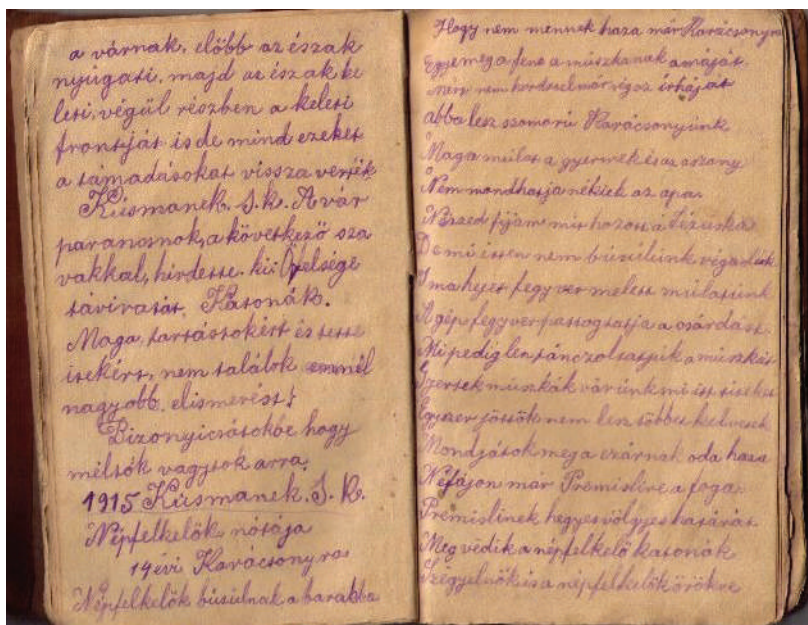 a várnak, előbb az észak
nyúgati, majd az északke
leti, végül részben a keleti
frontját is de mind ezeket
a támadásokat vissza verték
Kúsmanek. S. k. A vár
parancsnok, a következő sza
vakkal, hirdette. ki: Őfelsége
távíratát. Katonák.
Maga, tartástokért és tette
itekért, nem találok ennél
nagyobb. elismerést!
hogy
méltók vagytok arra
1915 Kúsmanek. S. k.
Népfelkelők nótája
14 évi Karácsonyra
Népfelkelők búsúlnak a barakba
Hogy nem mennek haza már Karácsonyra
Egye meg a fene a múszkának a máját
Mért nem hordta el már igaz írháját
abba lesz szomorú Karácsonyúnk
Maga múlat a gyermek és az aszony
Nem mondhatja nékiek az apa
Nézzed fijam mit hozott a Jézuska
De mi itten nem búsúlúnk vigadúnk
Ima hejet fegyver mellett múlatúnk
A gép fegyver pattogtatja a csárdást
Mi pedig len tánczoltattyúk a múszkát
Gyertek múszkák várúnk mi itt titeket
Egyszer jöttök nem lesz többet kedvetek
Mondjátok meg a czárnak oda haza
Ne fájon már Premislire a foga
Premislinek hegyes völgyes határát
Meg védik a népfelkelő katonák
is a népfelkelők örökre